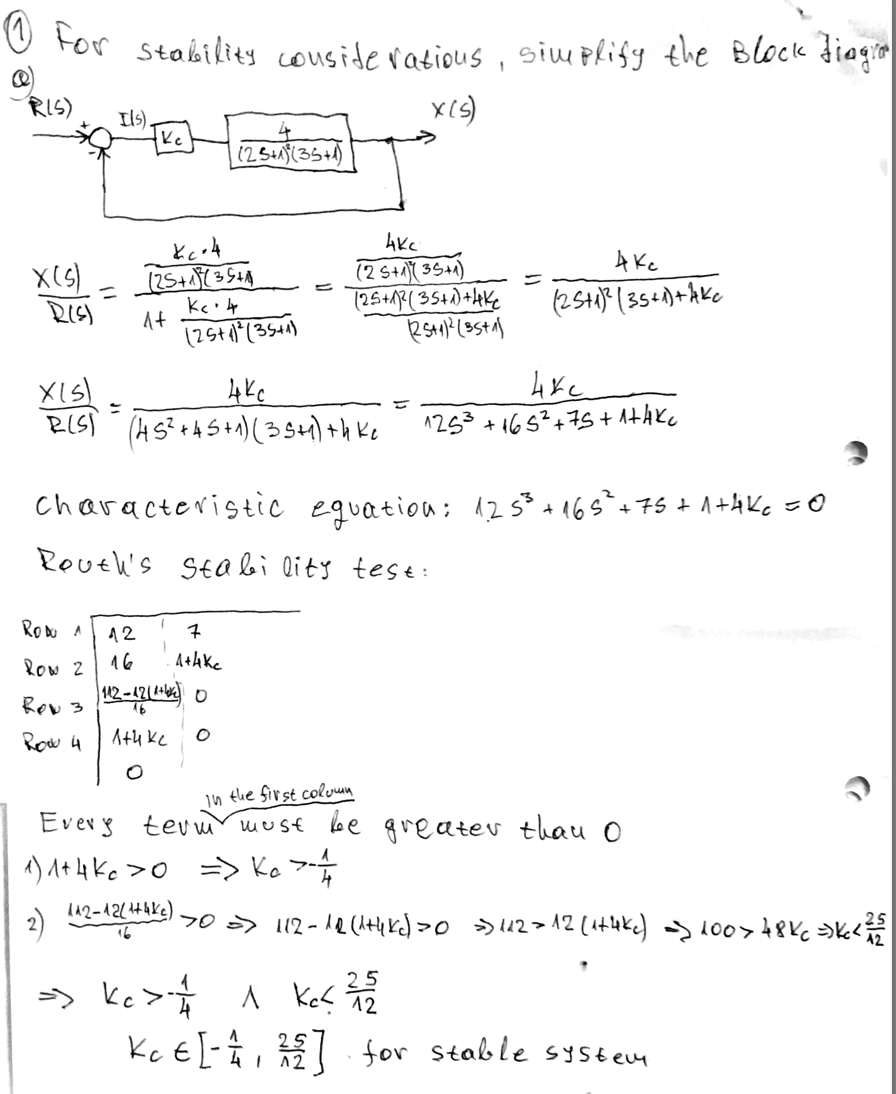 ① For stability considerations, simplify the Block diagram
a)
R(s) + - I(s) Kc 4/((2s+1)²(3s+1)) X(s)
X(s)/R(s) = (Kc·4/((2s+1)²(3s+1)))/(1+ Kc·4/((2s+1)²(3s+1))) = (4Kc/((2s+1)²(3s+1)))/(((2s+1)²(3s+1)+4Kc)/((2s+1)²(3s+1))) = 4Kc/((2s+1)²(3s+1)+4Kc)
X(s)/R(s) = 4Kc/((4s²+4s+1)(3s+1)+4Kc) = 4Kc/(12s³+16s²+7s+1+4Kc)
Characteristic equation: 12s³+16s²+7s+1+4Kc=0
Routh's stability test:
Row 1 12 7
Row 2 16 1+4Kc
Row 3 (112-12(1+4Kc))/16 0
Row 4 1+4Kc 0
0
in the first column
Every term must be greater than 0
1) 1+4Kc>0 => Kc>-1/4
2) (112-12(1+4Kc))/16 >0 => 112-12(1+4Kc)>0 => 112>12(1+4Kc) => 100>48Kc => Kc<25/12
=> Kc>-1/4 ∧ Kc<25/12
Kc∈[-1/4, 25/12] for stable system